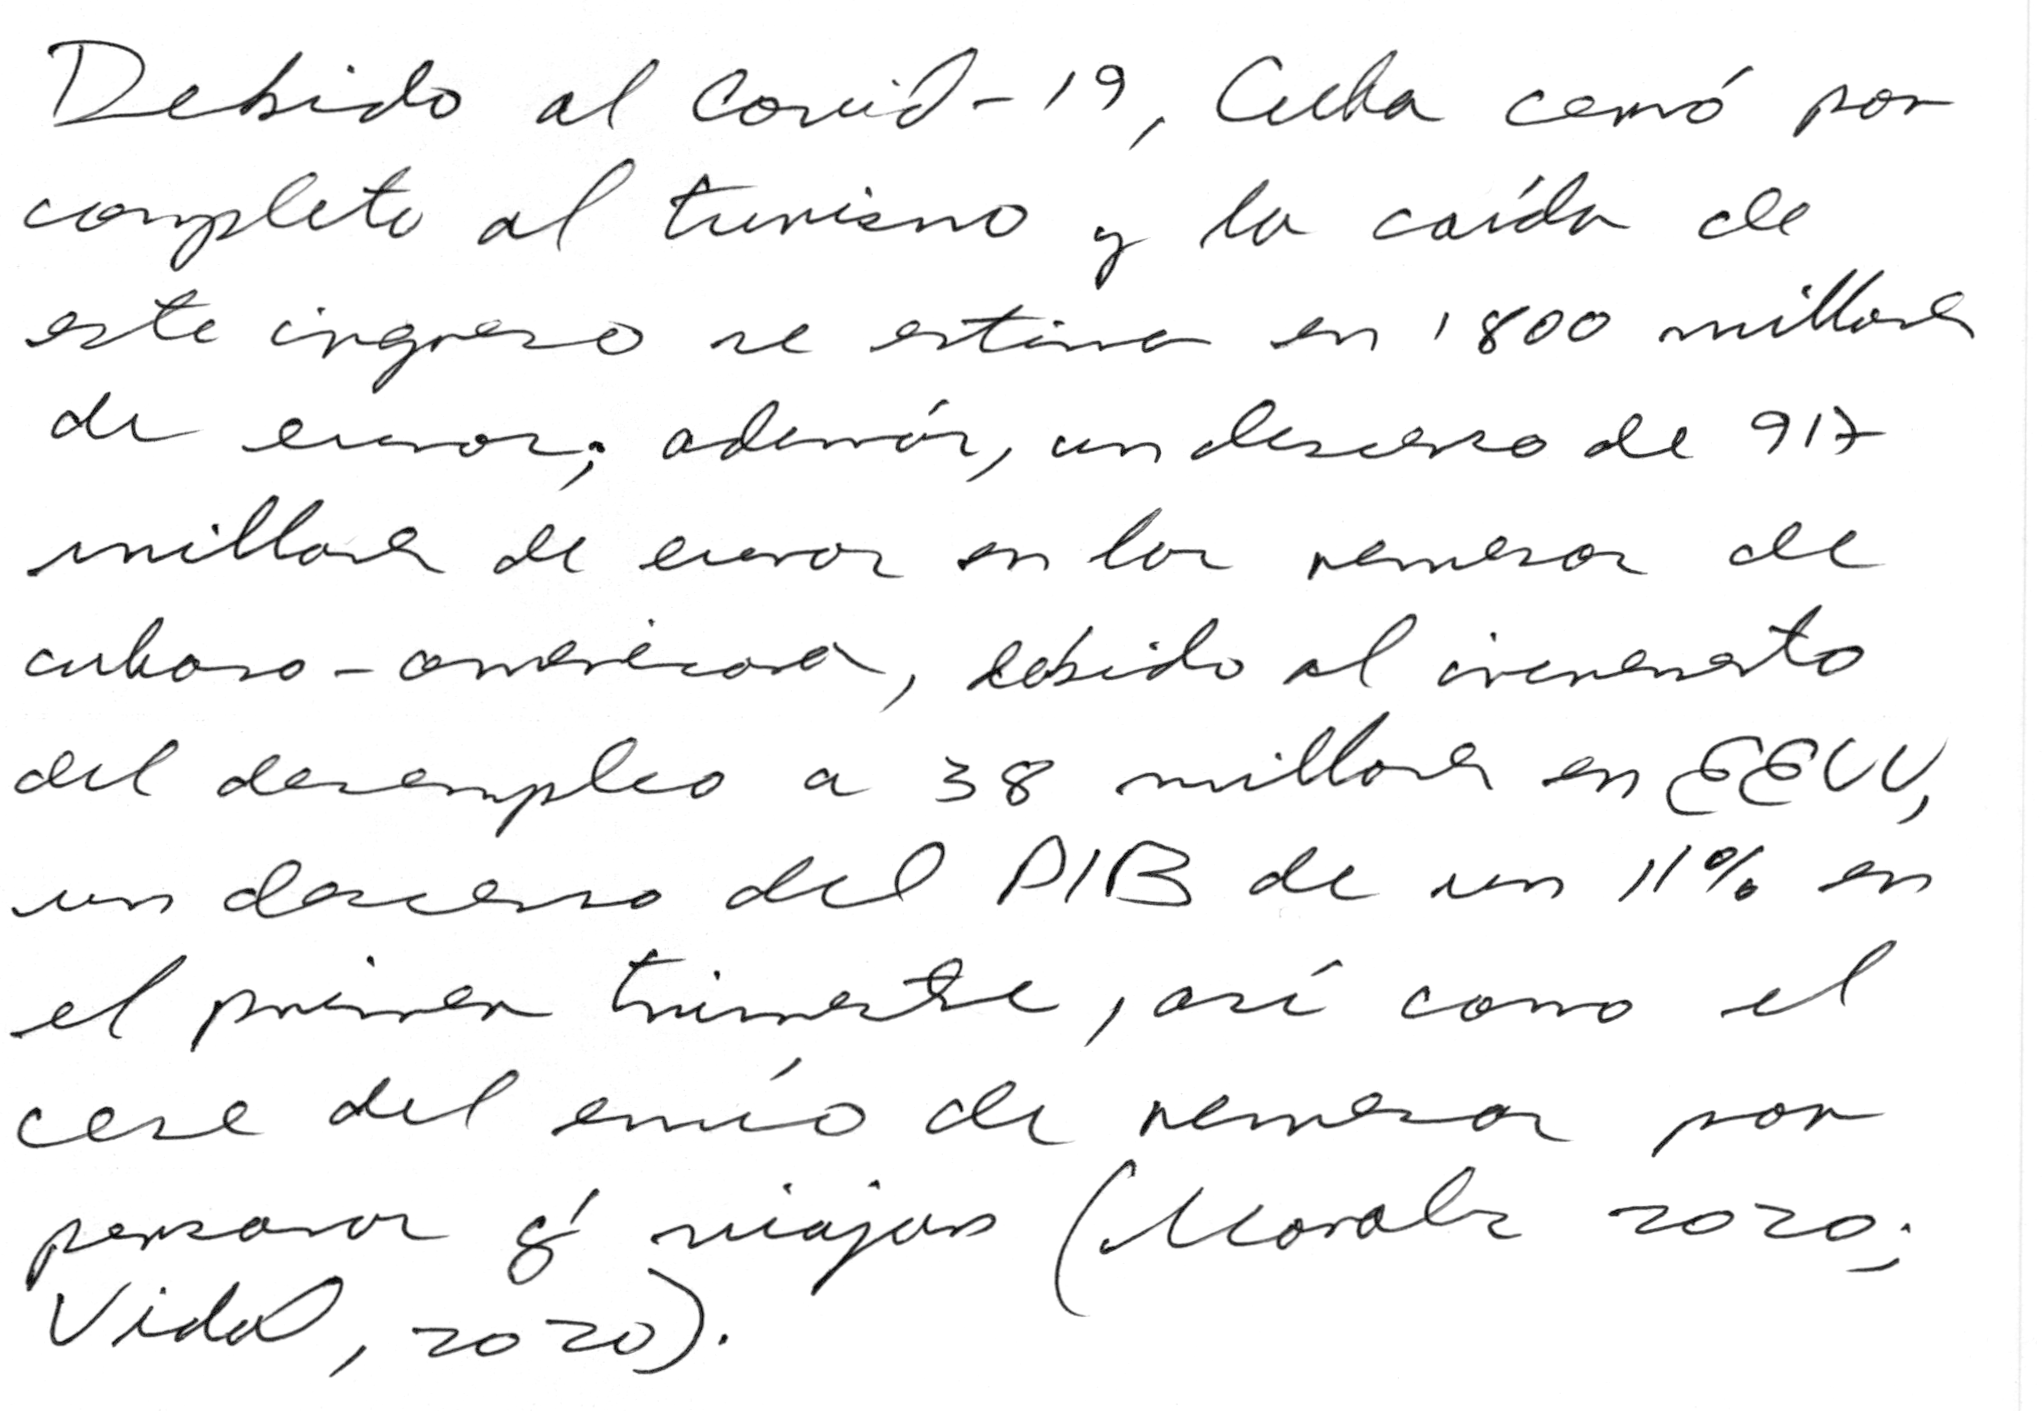 Debido al Covid-19, Cuba cerró por
completo al turismo y la caída de
este ingreso se estima en 1800 millones
de euros; además, un descenso de 917
millones de euros en las remesas de
cubano-americanos, debido al incremento
del desempleo a 38 millones en EEUU,
un descenso del PIB de un 11% en
el primer trimestre, así como el
cese del envío de remesas por
personas q' viajan (Morales 2020;
Vidal, 2020).